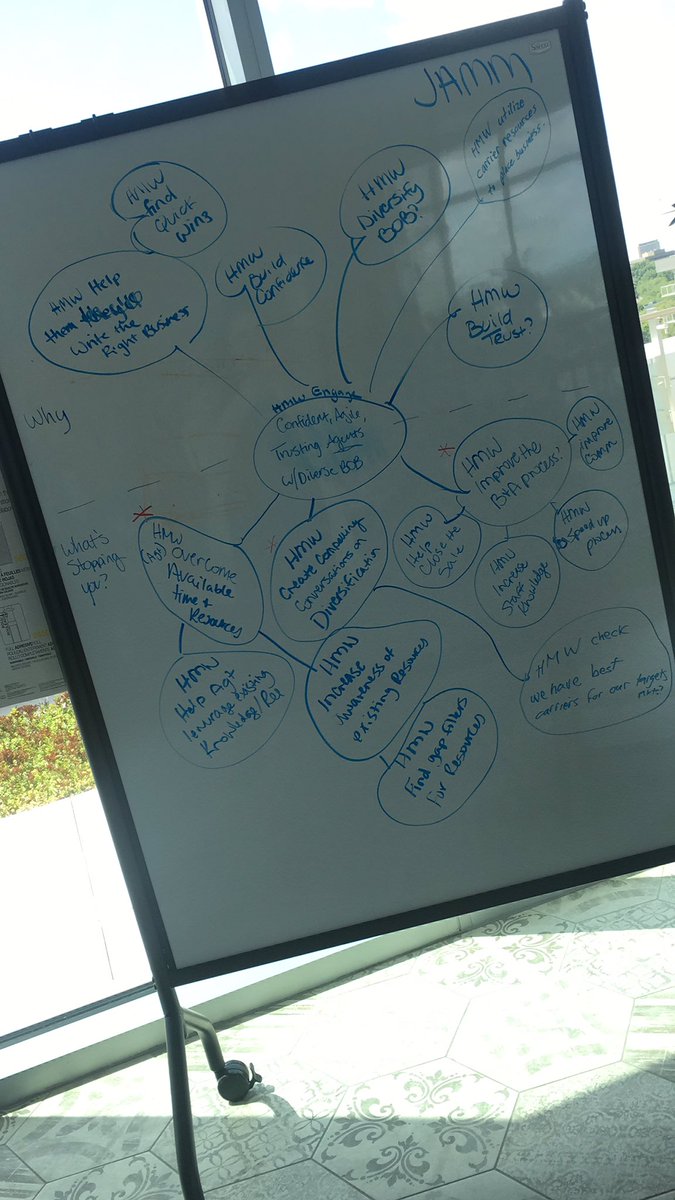 JAMM
Safco
HMW
find
Quick
Wins
HMW Help
them
Write the
Right Business
HMW
Build
Confidence
HMW
Diversify
BOB?
HMW utilize
carrier resources
to place business.
HMW
Build
Trust?
Why
HMW Engage
Confident, Agile,
Trusting Agents
w/Diverse BOB
What's
Stopping
you?
HMW
(Agt) Overcome
Available
time &
Resources
HMW
Create Compelling
Conversations on
Diversification
HMW
Improve the
process?
HMW
improve
Comm
HMW
Help
Close the
Sale
HMW
Increase
Staff
Knowledge
HMW
Speed up
process
HMW
Help Agt
leverage existing
Knowledge/
HMW
Increase
Awareness of
existing Resources
HMW
Find gap fillers
For Resources
HMW check
we have best
carriers for our targets